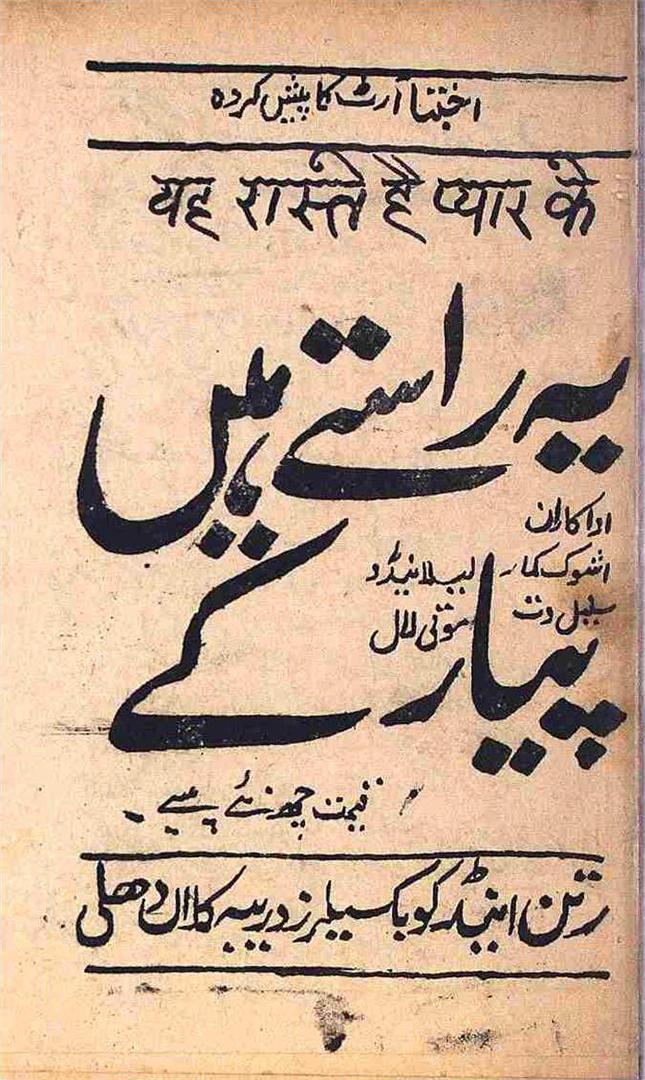 اجنتا آرٹ کا پیش کردہ
यह रास्ते है प्यार के
یہ راستے ہیں
اداکاران
اشوک کمار لیلا نیڈو
سنیل دت موتی لال
پیار کے
قیمت چھ نئے پیسے
رتن اینڈ کو بکسیلرز دریبہ کلاں دھلی